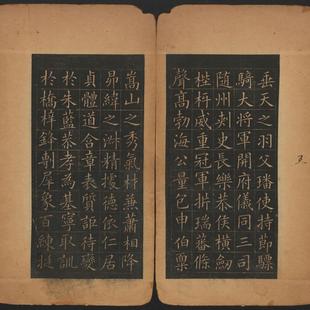 垂天之羽父璠使持節驃
騎大將軍開府儀同三司
隨州刺史長樂恭侯橫劒
梐枑威重冠軍析瑞蕃條
聲高渤海公量包申伯稟
嵩山之秀氣材兼蕭相降
昴緯之淑精據德依仁居
貞體道含章表質詎待變
於朱藍恭孝為基寧取訓
於橋梓鋒剸犀象百練挺